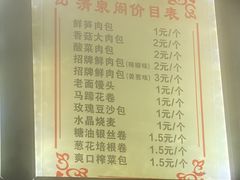 清泉阁价目表
鲜笋肉包 1元/个
香菇大肉包 2元/个
酸菜肉包 2元/个
招牌鲜肉包(辣椒味) 2元/个
招牌鲜肉包(姜葱味) 3元/个
老面馒头 1元/个
马蹄花卷 1元/个
玫瑰豆沙包 1元/个
水晶烧麦 1元/个
糖油银丝卷 1.5元/个
葱花培根卷 1.5元/个
爽口榨菜包 1.5元/个